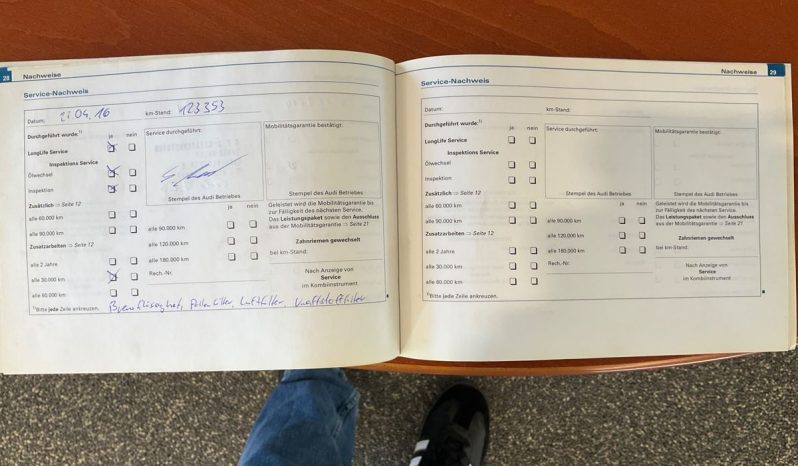 28 Nachweise
Service-Nachweis
Datum: 04.16 km-Stand: 123353
Durchgeführt wurde:¹⁾ ja nein
LongLife Service
Inspektions Service
Ölwechsel
Inspektion
Zusätzlich ⇒ Seite 12
alle 60.000 km
alle 90.000 km
Zusatzarbeiten ⇒ Seite 12
alle 2 Jahre
alle 30.000 km
alle 60.000 km
¹⁾Bitte jede Zeile ankreuzen.
Service durchgeführt:
Stempel des Audi Betriebes
ja nein
alle 90.000 km
alle 120.000 km
alle 180.000 km
Rech.-Nr.
Mobilitätsgarantie bestätigt:
Stempel des Audi Betriebes
Geleistet wird die Mobilitätsgarantie bis
zur Fälligkeit des nächsten Service.
Das Leistungspaket sowie den Ausschluss
aus der Mobilitätsgarantie ⇒ Seite 21
Zahnriemen gewechselt
bei km-Stand:
Nach Anzeige von
Service
im Kombiinstrument
Bremsflüssigkeit, Pollenfilter, Luftfilter, Kraftstofffilter
Nachweise 29
Service-Nachweis
Datum: km-Stand:
Durchgeführt wurde:¹⁾ ja nein
LongLife Service
Inspektions Service
Ölwechsel
Inspektion
Zusätzlich ⇒ Seite 12
alle 60.000 km
alle 90.000 km
Zusatzarbeiten ⇒ Seite 12
alle 2 Jahre
alle 30.000 km
alle 60.000 km
¹⁾Bitte jede Zeile ankreuzen.
Service durchgeführt:
Stempel des Audi Betriebes
ja nein
alle 90.000 km
alle 120.000 km
alle 180.000 km
Rech.-Nr.
Mobilitätsgarantie bestätigt:
Stempel des Audi Betriebes
Geleistet wird die Mobilitätsgarantie bis
zur Fälligkeit des nächsten Service.
Das Leistungspaket sowie den Ausschluss
aus der Mobilitätsgarantie ⇒ Seite 21
Zahnriemen gewechselt
bei km-Stand:
Nach Anzeige von
Service
im Kombiinstrument